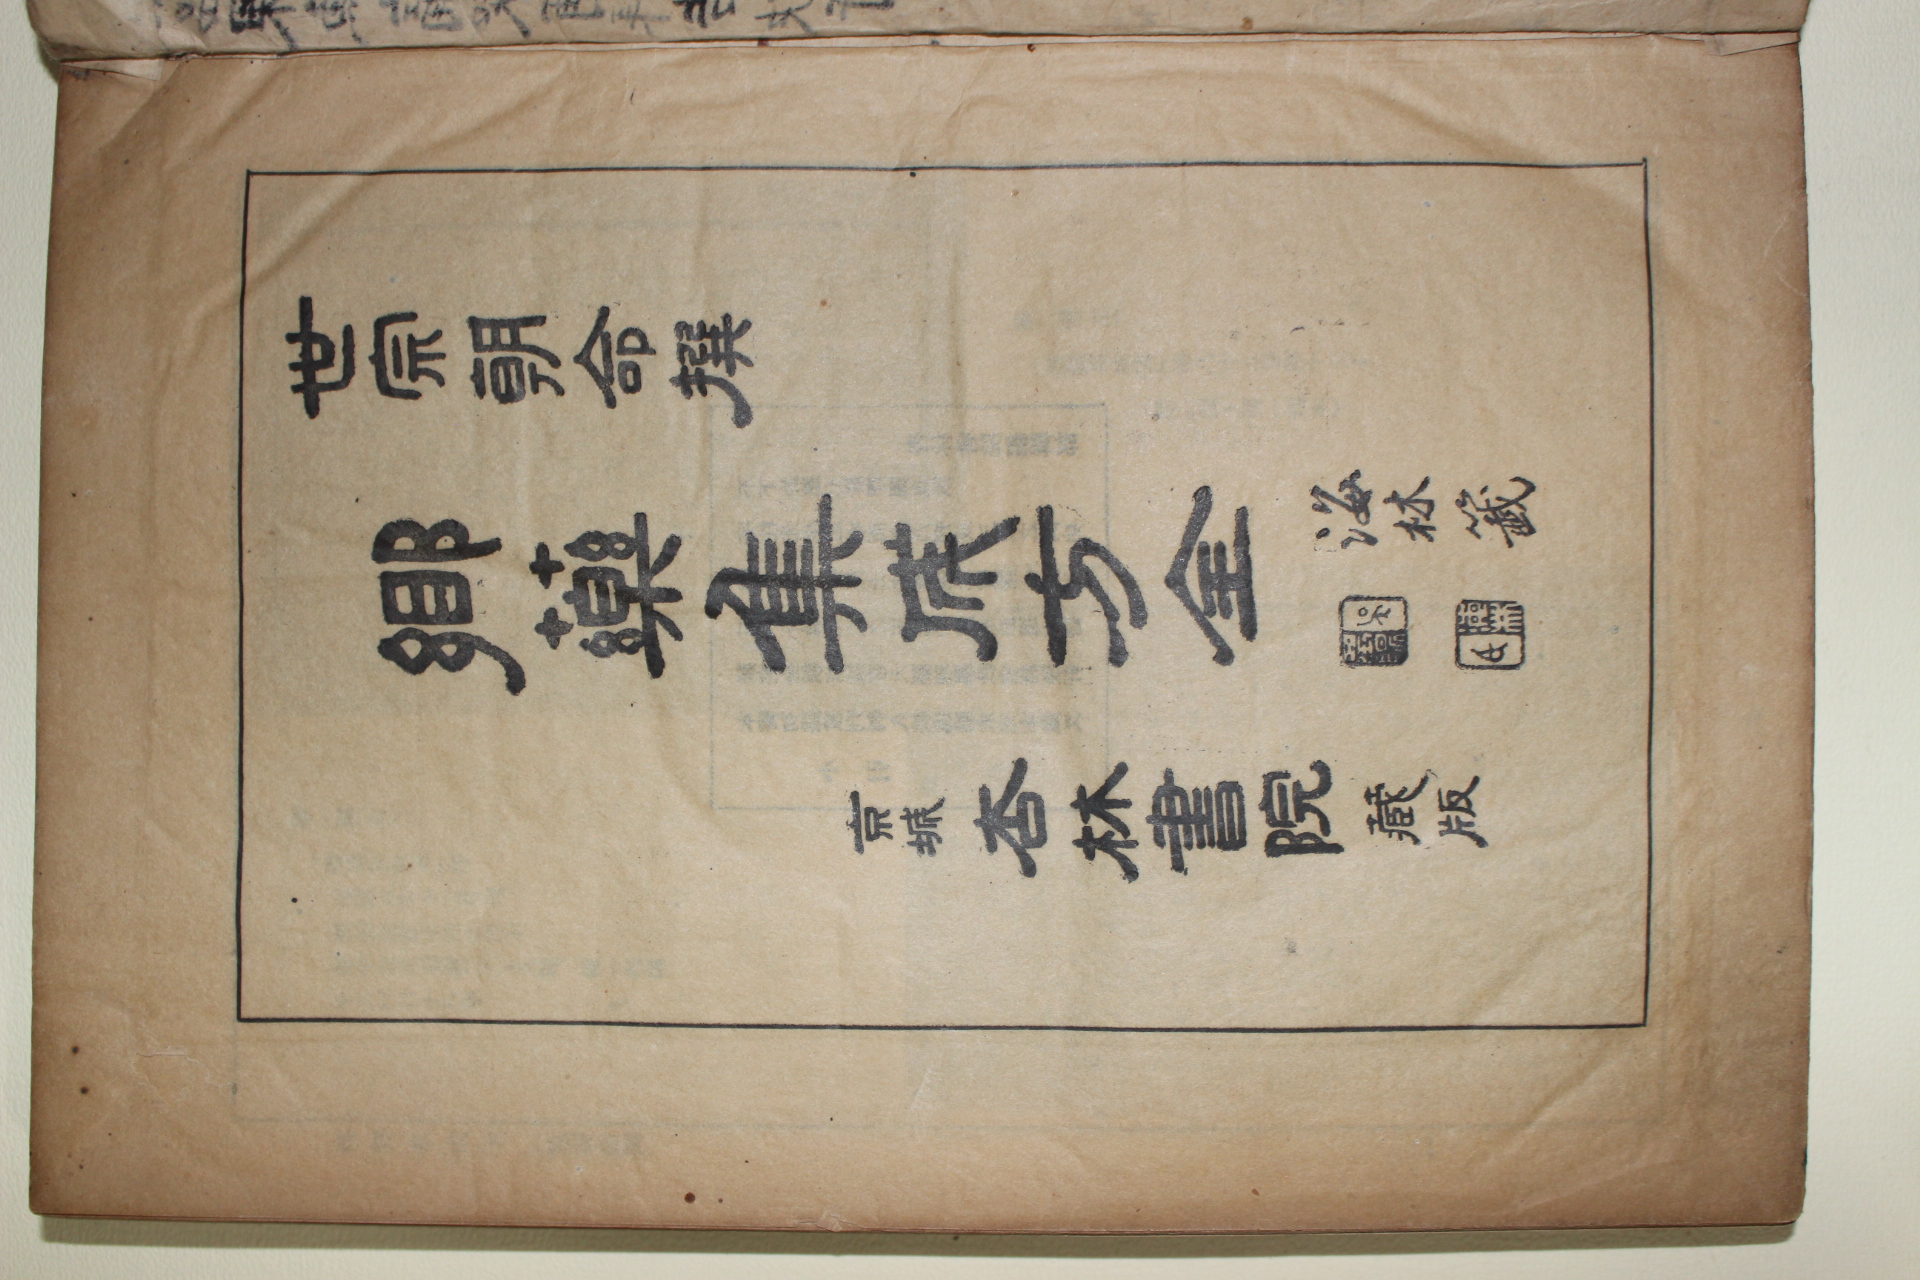 世宗朝命撰
鄉藥集成方全
海林籤
京城杏林書院藏版